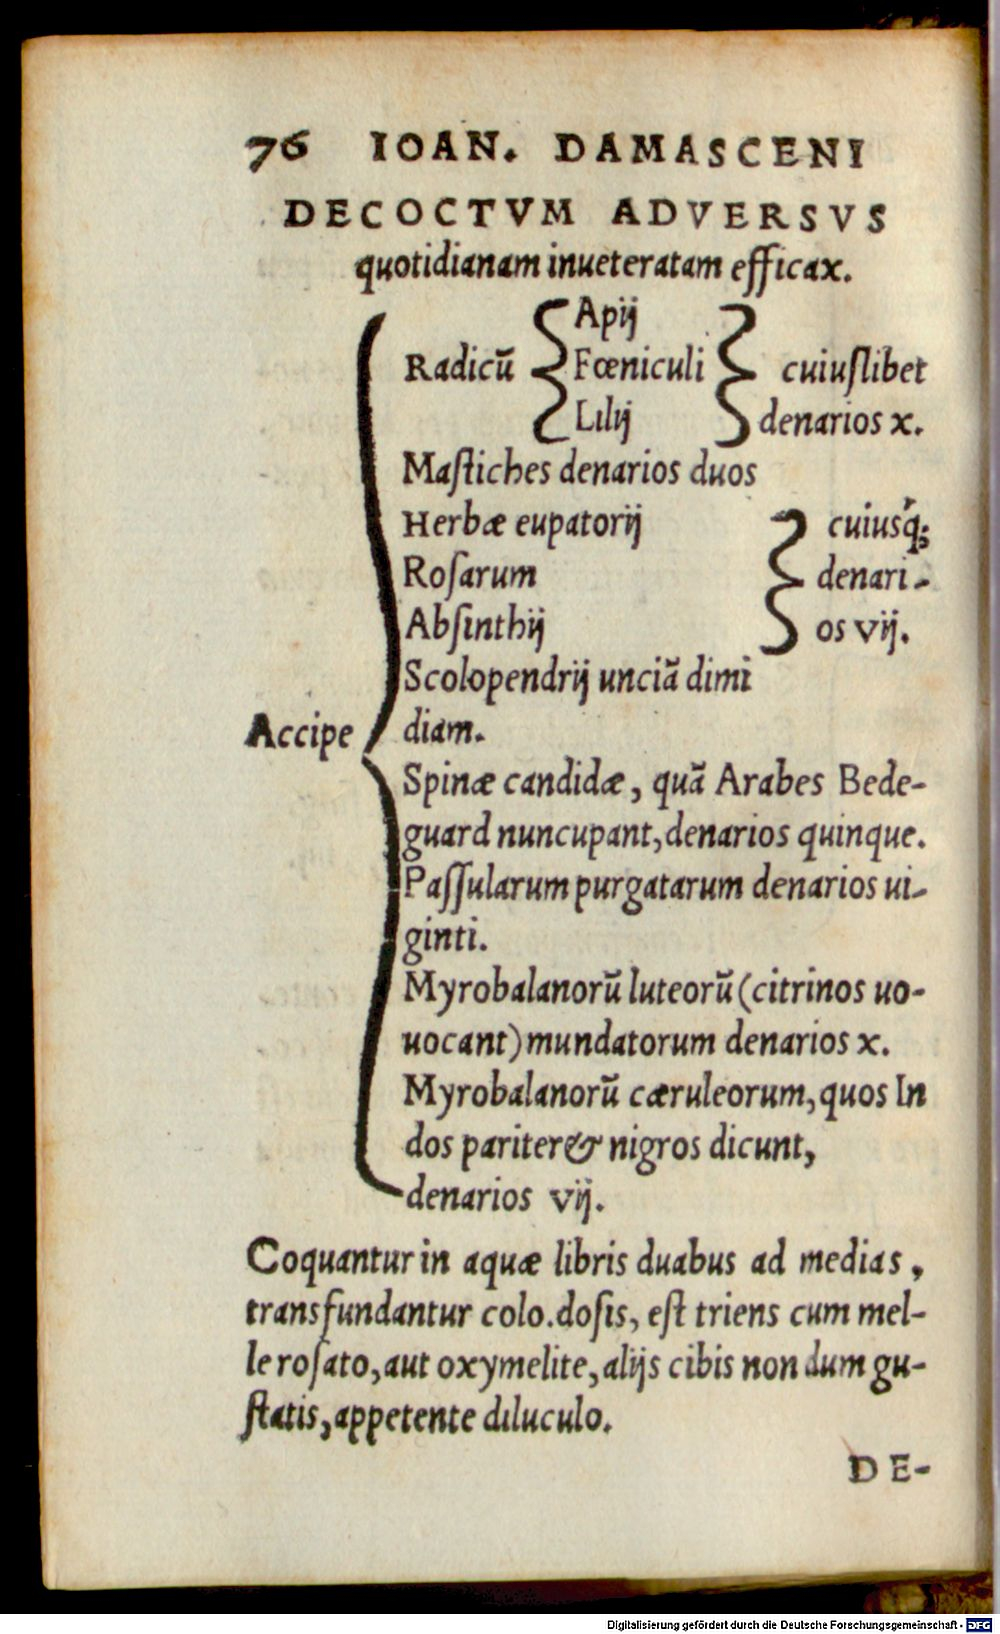 76 IOAN. DAMASCENI
DECOCTVM ADVERSVS
quotidianam inueteratam efficax.
Apij
Radicū Fœniculi cuiuſlibet
Lilij denarios x.
Maſtiches denarios duos
Herbæ eupatorij cuiusq́;
Roſarum denari-
Abſinthij os vij.
Scolopendrij unciā dimi
Accipe diam.
Spinæ candidæ, quā Arabes Bede-
guard nuncupant, denarios quinque.
Paſſularum purgatarum denarios ui-
ginti.
Myrobalanorū luteorū (citrinos uo-
uocant) mundatorum denarios x.
Myrobalanorū cæruleorum, quos In
dos pariter & nigros dicunt,
denarios vij.
Coquantur in aquæ libris duabus ad medias,
transfundantur colo. doſis, eſt triens cum mel-
le roſato, aut oxymelite, alijs cibis non dum gu-
ſtatis, appetente diluculo.
DE-
Digitalisierung gefördert durch die Deutsche Forschungsgemeinschaft - DFG